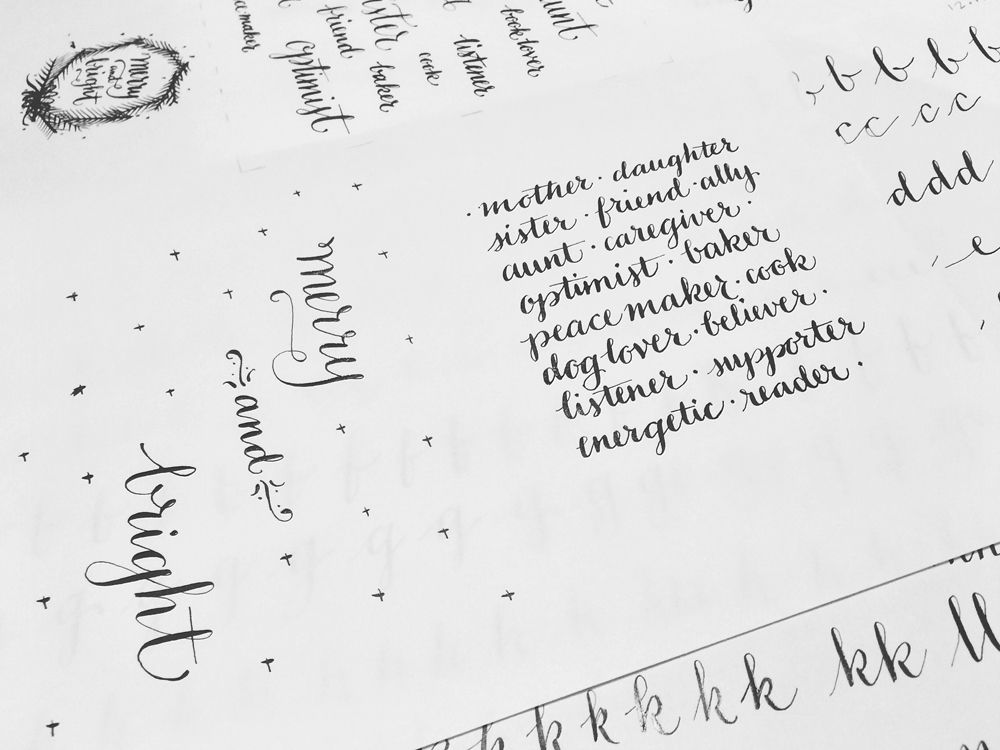 merry
and
bright
maker
friend
optimist
sister
baker
cook
listener
book lover
aunt
· mother · daughter
sister · friend · ally
aunt · caregiver ·
optimist · baker
peace maker · cook
dog lover · believer ·
listener · supporter
energetic · reader ·
merry
and
bright
b b b b
cc cc
ddd
e
k k k k k k kk ll